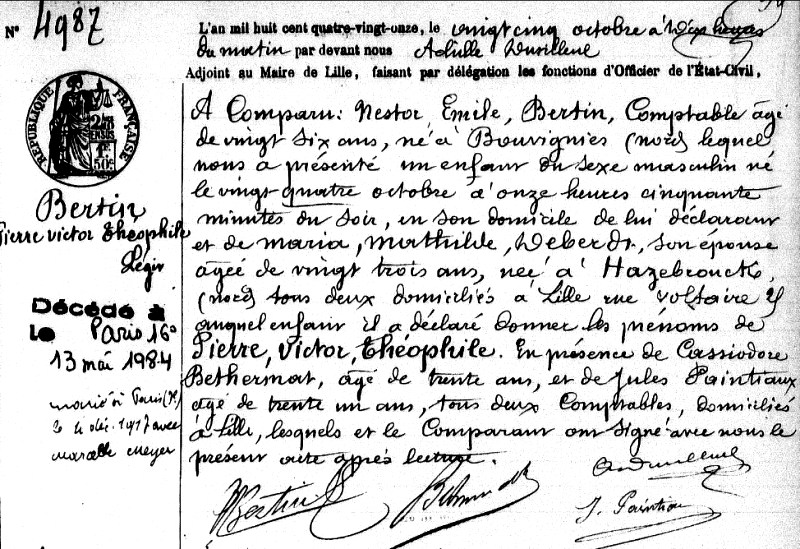 N° 4987
L'an mil huit cent quatre-vingt-onze, le vingt cinq octobre à dix heures
du matin par devant nous Achille
Adjoint au Maire de Lille, faisant par délégation les fonctions d'Officier de l'État-Civil,
RÉPUBLIQUE FRANÇAISE
Bertin
Pierre Victor Théophile
Légit
Décédé à
le Paris 16e
13 mai 1984
marié à Paris
le 4 déc. 1917 avec
Marcelle Meyer
A Comparu: Nestor, Emile, Bertin, Comptable âgé
de vingt six ans, né à Bouvignies (nord) lequel
nous a présenté un enfant du sexe masculin né
le vingt quatre octobre à onze heures cinquante
minutes du soir, en son domicile de lui déclarant
et de maria, mathilde, Deberdt, son épouse
âgée de vingt trois ans, née à Hazebrouck,
(nord) tous deux domiciliés à Lille rue Voltaire
auquel enfant il a déclaré donner les prénoms de
Pierre, Victor, Théophile. En présence de Cassiodore
Bethermat, âgé de trente ans, et de Jules Paintiaux
âgé de trente un ans, tous deux Comptables, domiciliés
à Lille, lesquels et le Comparant ont signé avec nous le
présent acte après lecture.
Bertin
J. Paintiaux